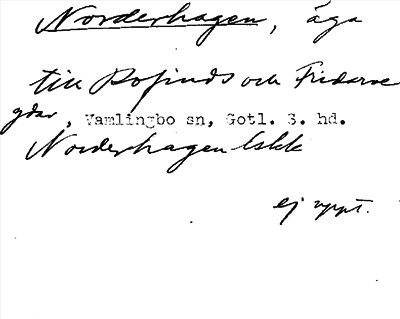 Norderhagen, äga
till Rofinds och Fredarve
gdar, Vamlingbo sn, Gotl. S. hd.
Norderhagen lskk
ej uppt.